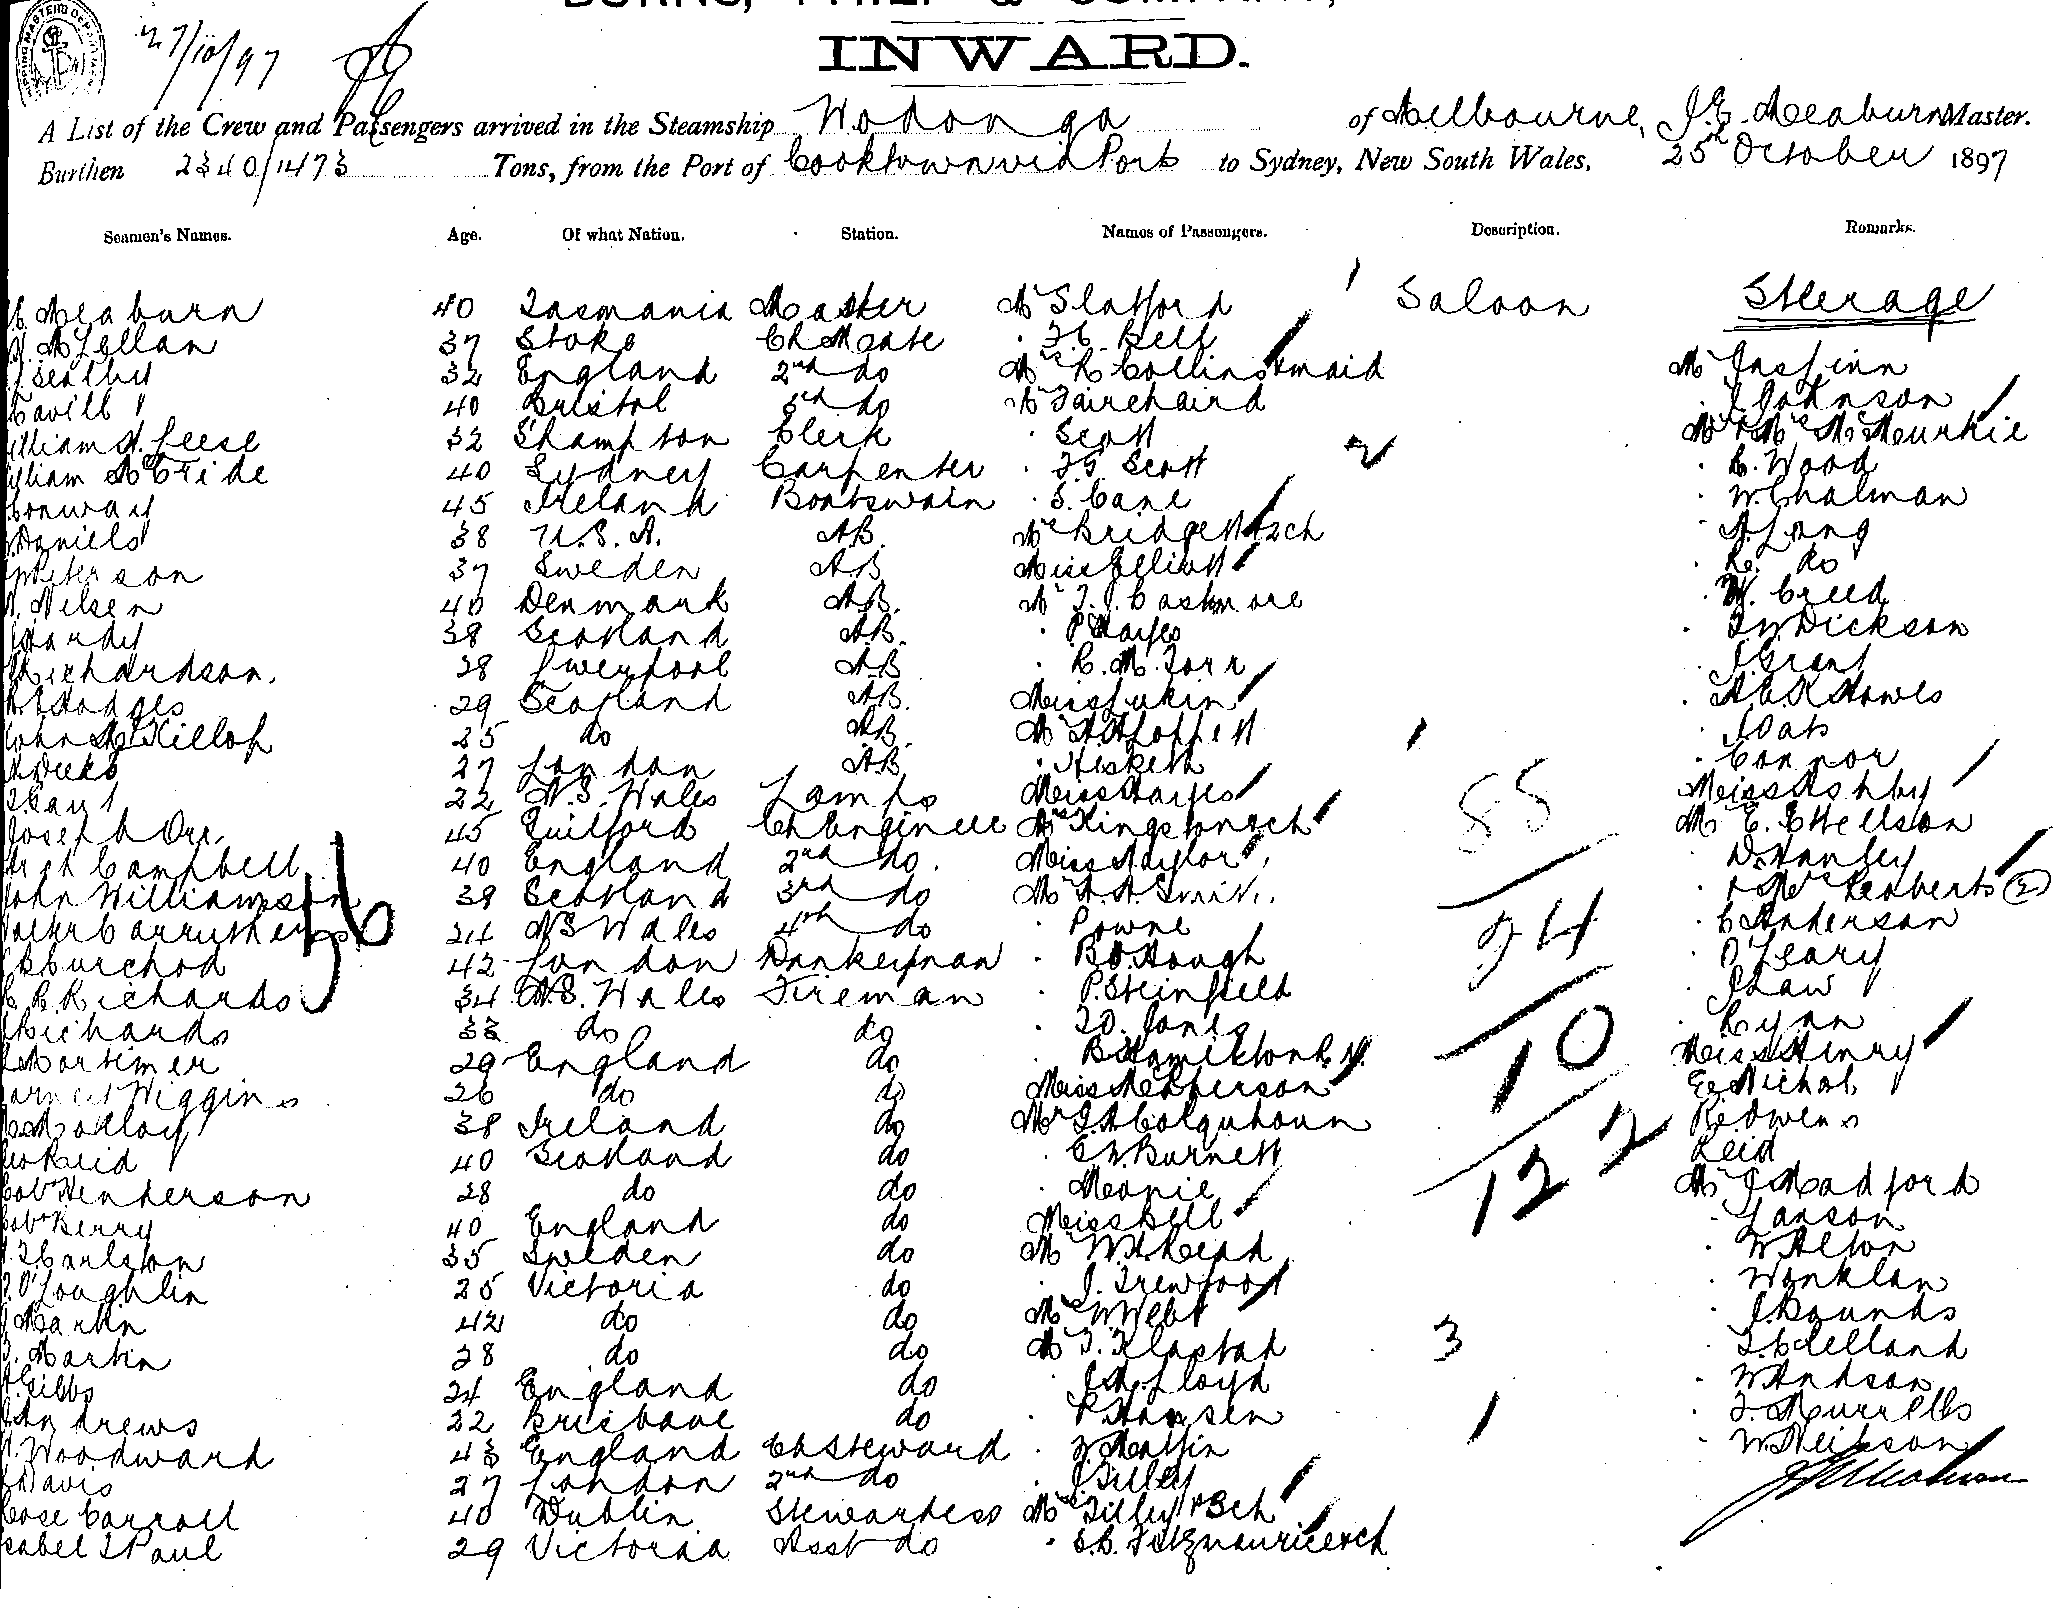 INWARD.
27/10/97
A List of the Crew and Passengers arrived in the Steamship Wodonga of Melbourne, J.G. Meaburn Master.
Burthen 2340/1473 Tons, from the Port of Cooktown via Ports to Sydney, New South Wales, 25th October 1897
Seamen's Names. Age. Of what Nation. Station. Names of Passengers. Description. Remarks.
Meaburn 40 Tasmania Master Mr Slatford 1 Saloon Steerage
McLellan 37 Stoke Ch Mate Bell
32 England 2nd do Mrs R Collins & maid Mr
Cavill 40 Bristol 3rd do Mr Fairchaird J Johnson
William H. Leese 32 Shampton Clerk Scott Mr & Mrs McMurkie
William McBride 40 Sydney Carpenter F.G. Scott 2 C. Wood
Conway 45 Ireland Boatswain S. Cane W. Chalman
Daniels 38 U.S.A. A.B. Mrs Bridge & 2ch A. Long
Peterson 37 Sweden AB Miss Elliott R. do
Nilsen 40 Denmark A.B. Mr T.J. Cashmore W. Creed
Hardy 38 Scotland A.B. P Hayes Dickson
Richardson. 28 Liverpool AB R. M. Torr J Grant
Hodges 29 Scotland A.B. Miss Lukin Howes
John McKillop 25 do A.B. Mr Moffett 1 Oats
Weeks 27 London AB Hesketh Connor
22 N.S. Wales Lamps Miss Hayes 85 Miss Ashby
Joseph Orr 45 Guilford Ch Enginee Mrs Kingston & ch Mr E. Ellellson
Arch Campbell 40 England 2nd do. Miss Naylor D. Hanley
John Williamson 56 39 Scotland 3rd do Mr A.A. Smith. 24 & Mrs Roberts (2)
Walter Carruthers 24 N S Wales 4th do Powne C Anderson
Burchod 42 London Donkeyman B.O. Hough O'Leary
C. R. Richards 34 N.S. Wales Fireman P. Steinfield J Law
Richards 33 do do Jones 10 Ryan
Mortimer 29 England do B Hamilton R.N. Miss Henry
Ernest Wiggins 26 do do Miss McPherson Geo Nichol
Molloy 38 Ireland do Mr J.A Colquhoun 122 R. Owens
Reid 40 Scotland do E W. Burnett Reid
Robt Henderson 28 do do Monie Mr J Madford
Robt Berry 40 England do Miss Bell Lawson
Carlston 35 Sweden do Mr W.H. Read W Alton
O'Loughlin 25 Victoria do J. Trewfoot Winklan
Martin 42 do do Mrs W Webt J. Bounds
Martin 28 do do Mr T. Klastad 3 Clelland
Gibbs 24 England do Lloyd W Andson
Andrews 22 Brisbane do P Hansen 1 J. Murrells
Woodward 43 England Ch Steward Martin W. Neilson
Davis 27 London 2nd do J Tilley
Rose Carroll 40 Dublin Stewardess Mrs Tilley & 3ch
Isabel I Paul 29 Victoria Asst do S.B. Fitzmaurice & ch